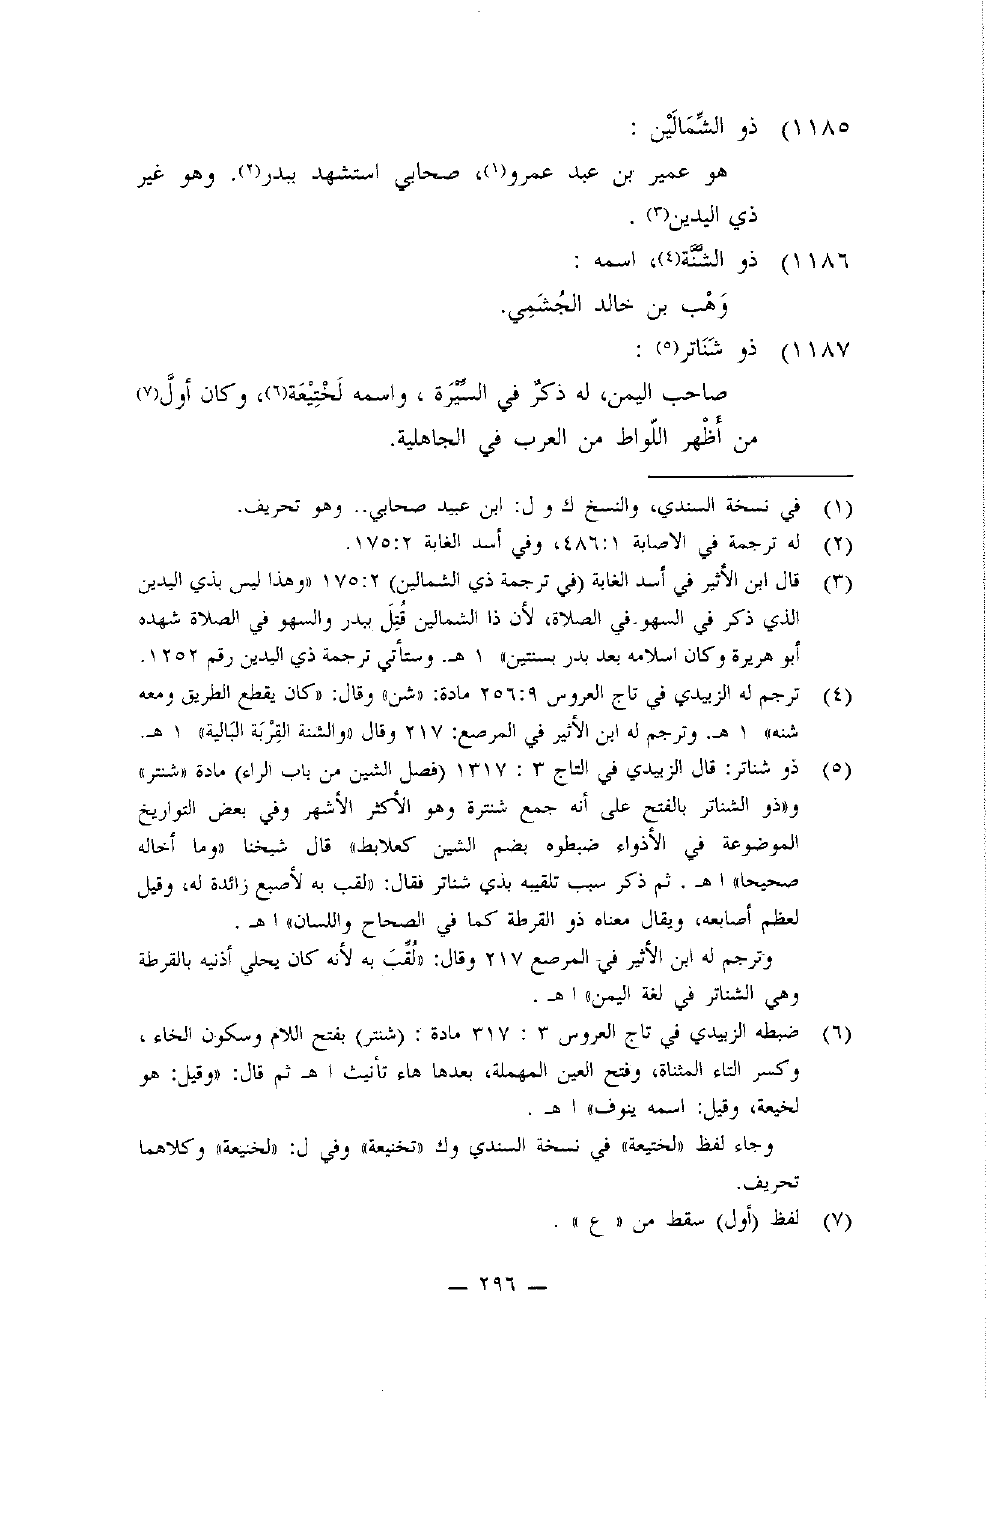 ١١٨٥) ذو الشِّمَالَيْن :
هو عمير بن عبد عمرو(١)، صحابي استشهد ببدر(٢). وهو غير
ذي اليدين(٣) .
١١٨٦) ذو الشَّنَّة(٤)، اسمه :
وَهْب بن خالد الجُشَمِي.
١١٨٧) ذو شَنَاتر(٥) :
صاحب اليمن، له ذكرٌ في السِّيْرَة ، واسمه لَخْتِيْعَة(٦)، وكان أولَّ(٧)
من أَظْهر اللّواط من العرب في الجاهلية.
(١) في نسخة السندي، والنسخ ك و ل: ابن عبيد صحابي.. وهو تحريف.
(٢) له ترجمة في الاصابة ٤٨٦:١، وفي أسد الغابة ١٧٥:٢.
(٣) قال ابن الأثير في أسد الغابة (في ترجمة ذي الشمالين) ١٧٥:٢ «وهذا ليس بذي اليدين
الذي ذكر في السهو في الصلاة، لأن ذا الشمالين قُتِلَ ببدر والسهو في الصلاة شهده
أبو هريرة وكان اسلامه بعد بدر بسنتين» ١ هـ. وستأتي ترجمة ذي اليدين رقم ١٢٥٢.
(٤) ترجم له الزبيدي في تاج العروس ٢٥٦:٩ مادة: «شن» وقال: «كان يقطع الطريق ومعه
شنه» ١ هـ. وترجم له ابن الأثير في المرصع: ٢١٧ وقال «والشنة القِرْبَة البَالية» ١ هـ.
(٥) ذو شناتر: قال الزبيدي في التاج ٣ : ١٣١٧ (فصل الشين من باب الراء) مادة «شنتر»
و«ذو الشناتر بالفتح على أنه جمع شنترة وهو الأكثر الأشهر وفي بعض التواريخ
الموضوعة في الأذواء ضبطوه بضم الشين كعلابط» قال شيخنا «وما أخاله
صحيحا» ا هـ . ثم ذكر سبب تلقيبه بذي شناتر فقال: «لقب به لأصبع زائدة له، وقيل
لعظم أصابعه، ويقال معناه ذو القرطة كما في الصحاح واللسان» ا هـ .
وترجم له ابن الأثير في المرصع ٢١٧ وقال: «لُقِّبَ به لأنه كان يحلي أذنيه بالقرطة
وهي الشناتر في لغة اليمن» ا هـ .
(٦) ضبطه الزبيدي في تاج العروس ٣ : ٣١٧ مادة : (شنتر) بفتح اللام وسكون الخاء ،
وكسر التاء المثناة، وفتح العين المهملة، بعدها هاء تأنيث ا هـ ثم قال: «وقيل: هو
لخيعة، وقيل: اسمه ينوف» ا هـ .
وجاء لفظ «لختيعة» في نسخة السندي وك «تخنيعة» وفي ل: «لخنيعة» وكلاهما
تحريف.
(٧) لفظ (أول) سقط من « ع » .
— ٢٩٦ —